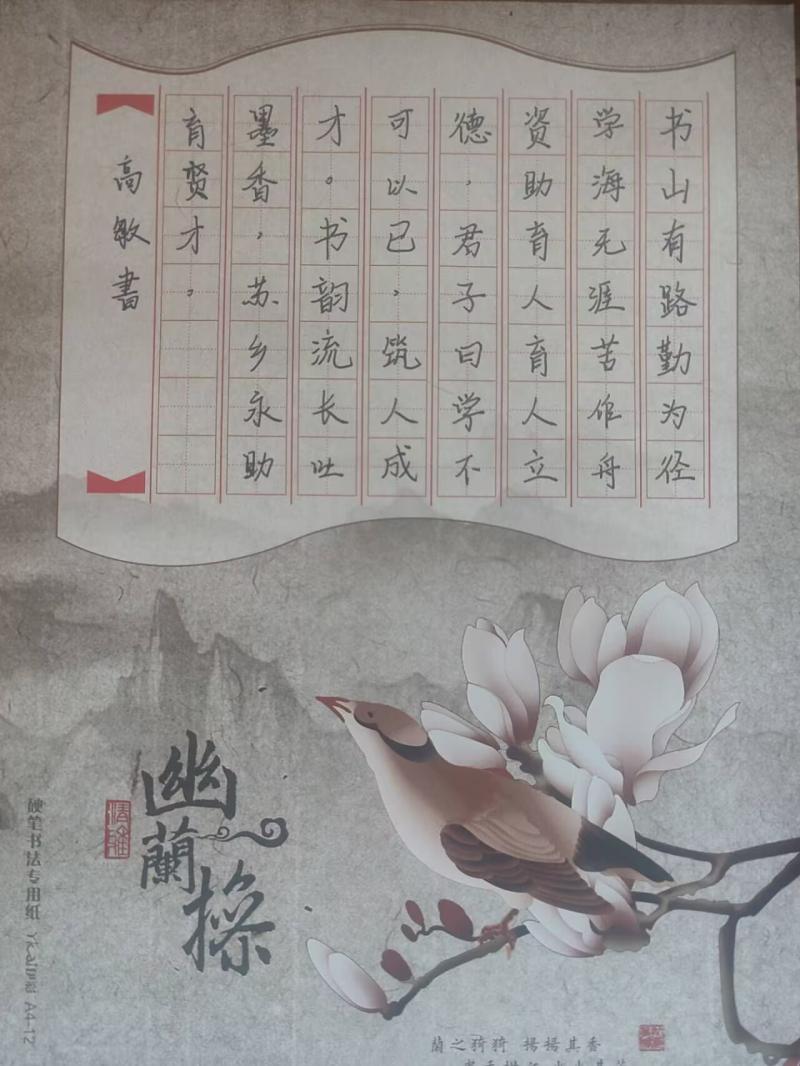 书山有路勤为径
学海无涯苦作舟
资助育人育人立
德，君子曰学不
可以已，筑人成
才。书韵流长吐
墨香，苏乡永助
育贤才。
高敏書
幽蘭操
清雅
硬笔书法专用纸
A4-12
蘭之猗猗 揚揚其香